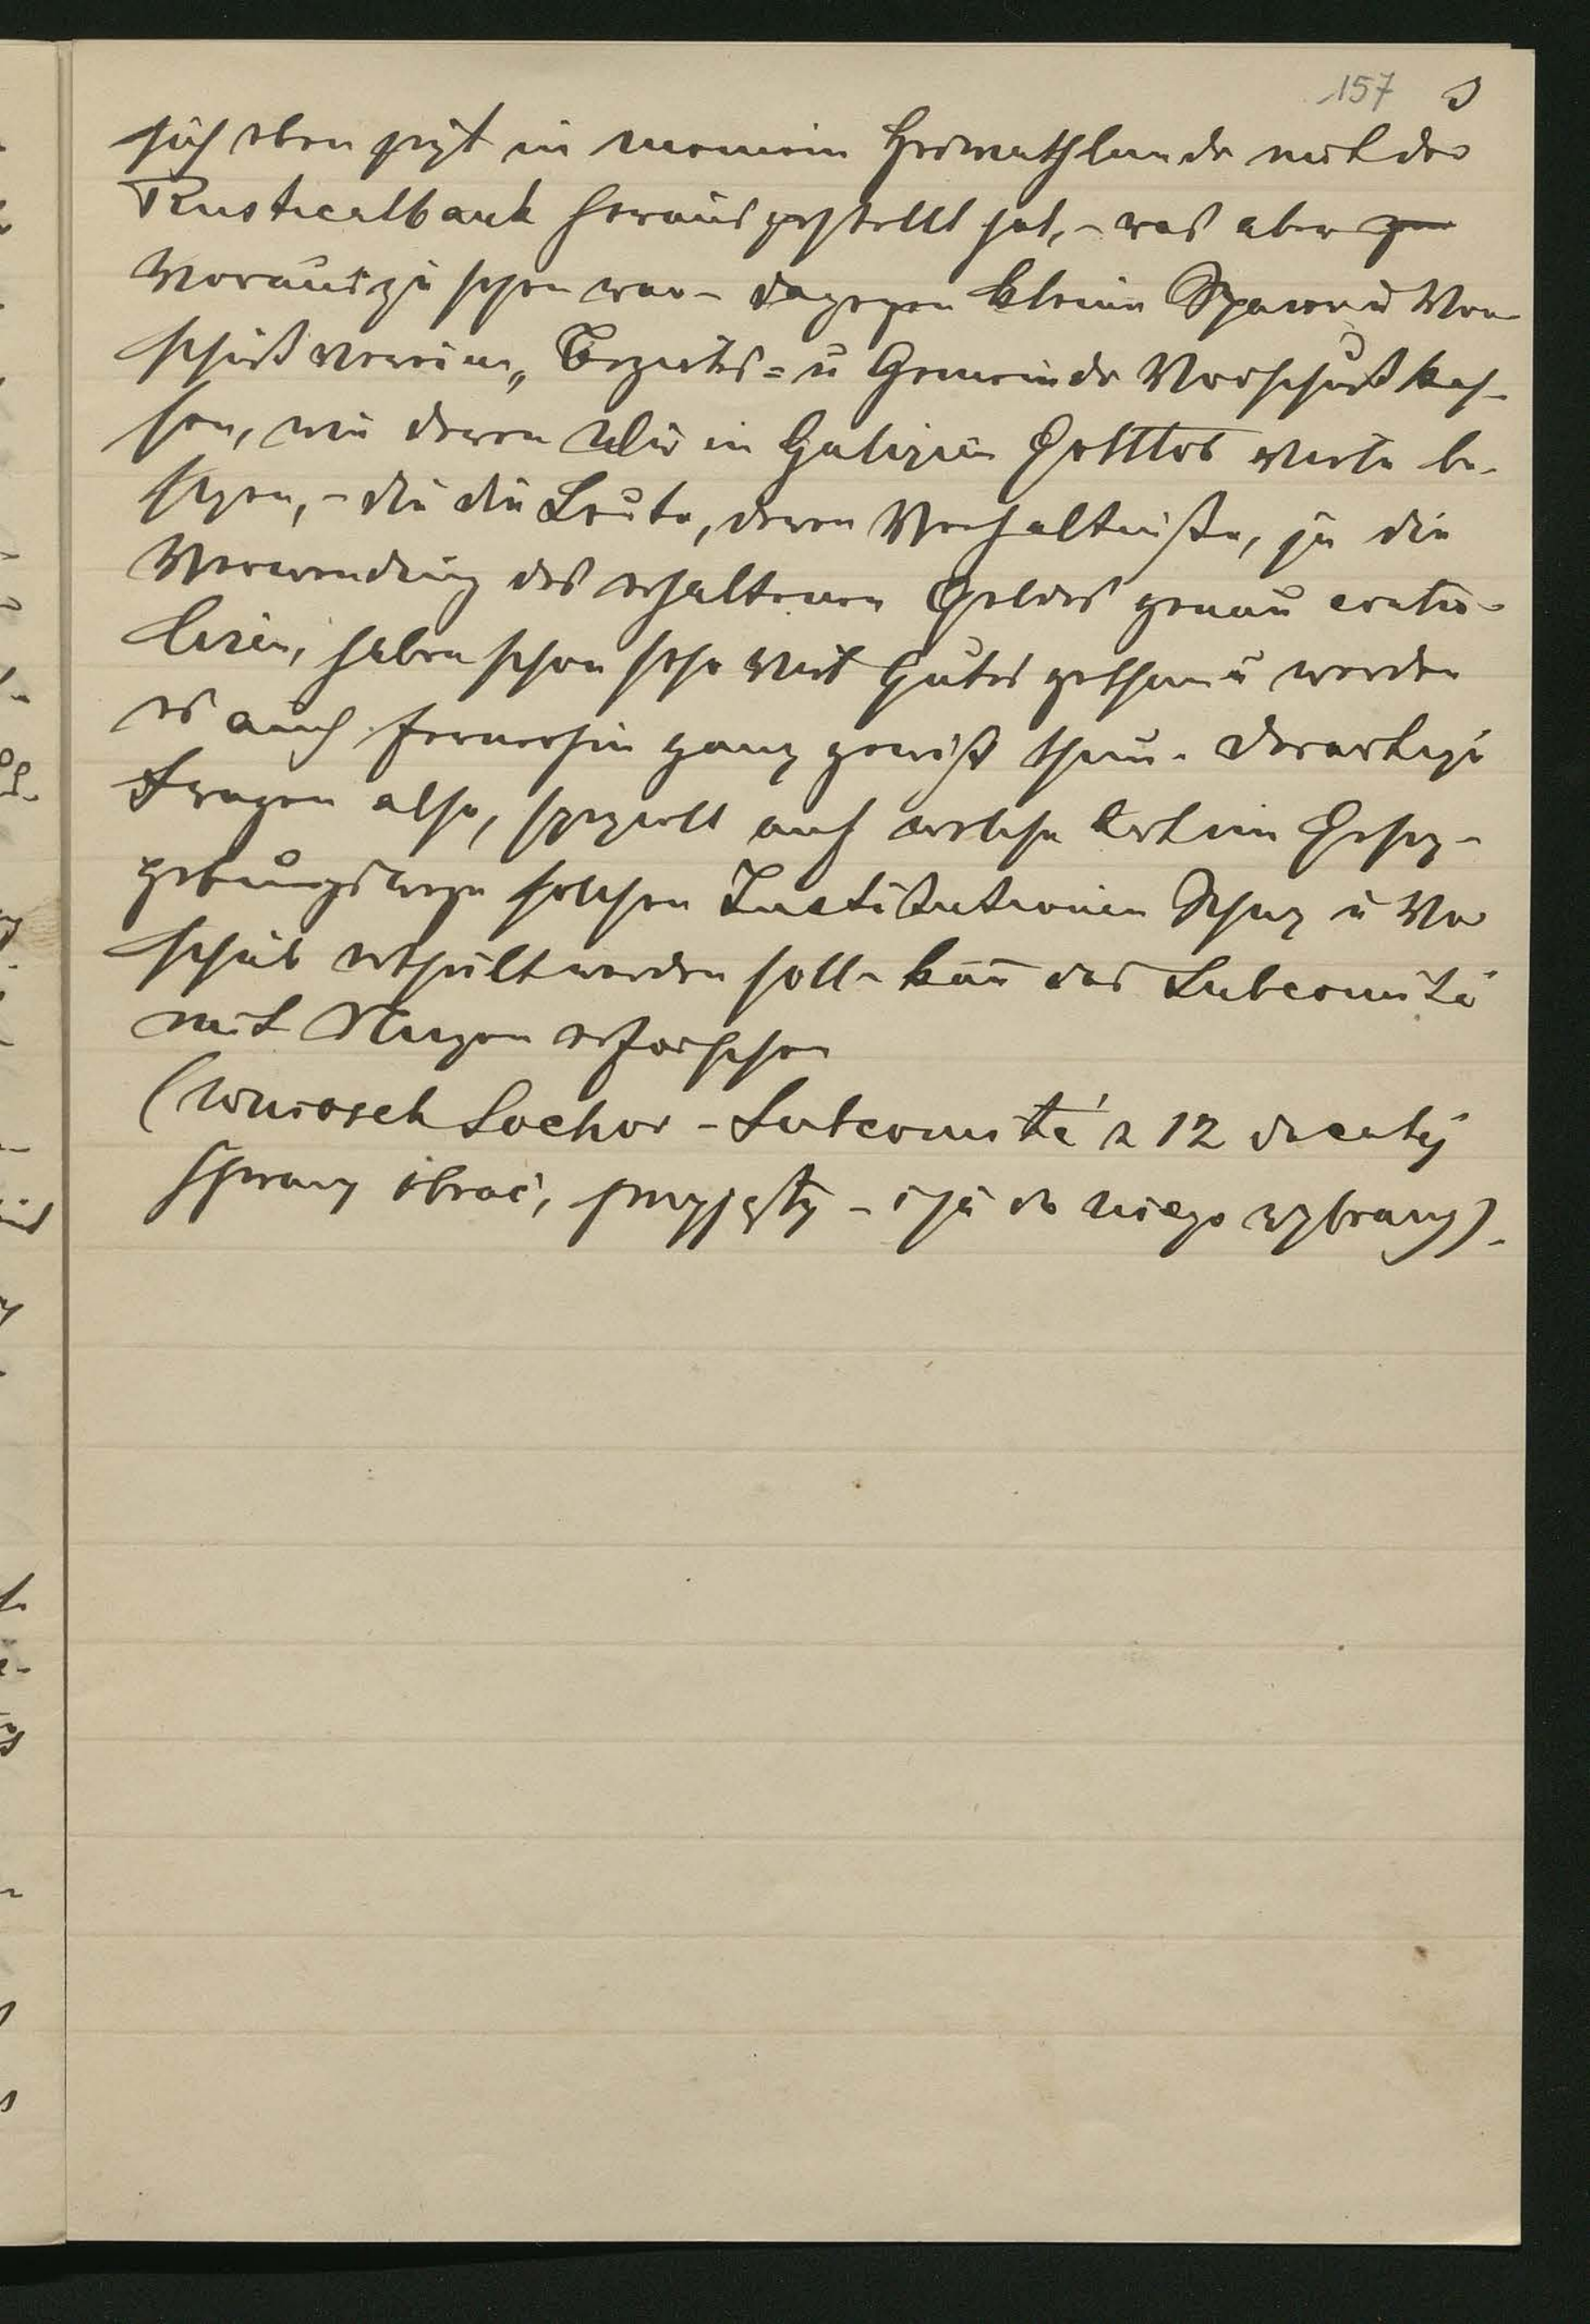 157 3
sich eben jezt in meinem Heimathlande mit der
Rusticalbank herausgestellt hat, - was aber
vorauszusehen war - dagegen kleine Spar u Vor-
schußvereine, Bezirks= u Gemeinde Vorschußkas-
sen, wie deren Wir in Galizien Gottlob viele be-
sizen, - die die Leute, deren Verhältniße, ja die
Verwendung des erhaltenen Geldes genau contro-
liren, haben schon sehr viel Gutes gethan u werden
es auch fernerhin ganz gewiß thun. Derartige
Fragen also, speziell auf welche Art im Gesez-
gebungswege solchen Institutionen Schuz u Vor
schub ertheilt werden soll - kañ das Subcomité
mit Nuzen erforschen
(Wniosek Lochor - Subcomité z 12 do całéj
sprawy obrać, przyjęty - i ja do niego wybrany).